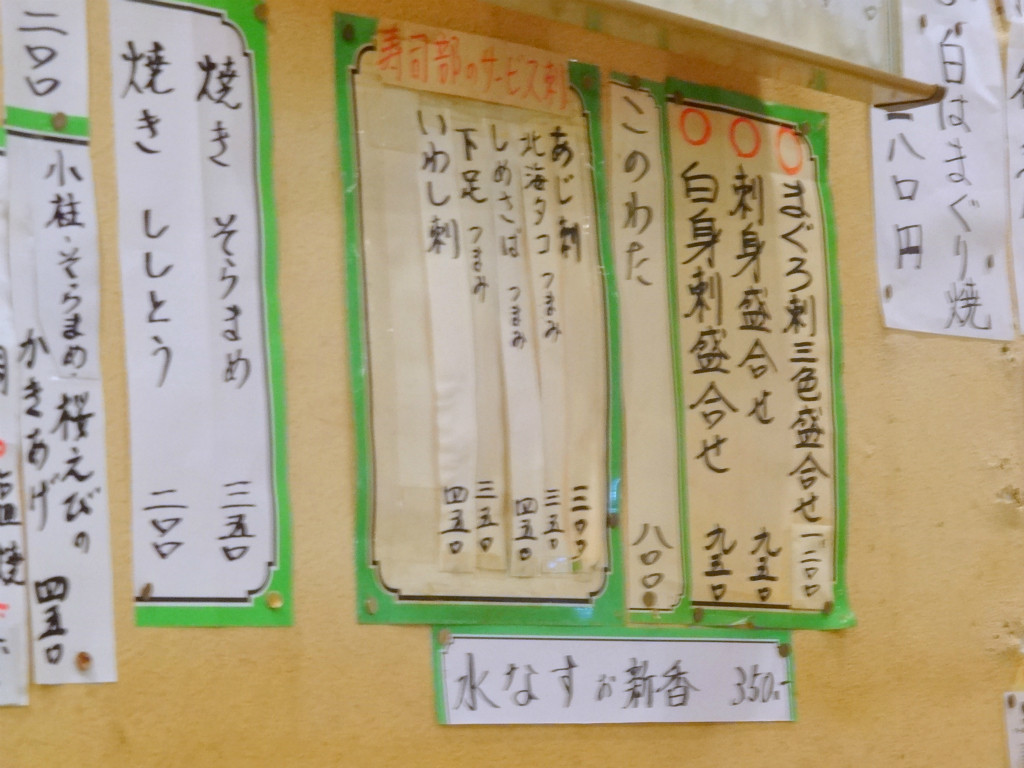 白はまぐり焼
一八〇円
まぐろ刺三色盛合せ 一二〇〇
刺身盛合せ 九五〇
白身刺盛合せ 九五〇
このわた 八〇〇
寿司部のサービス刺
あじ刺 三〇〇
北海タコつまみ 三五〇
しめさばつまみ 四五〇
下足つまみ 三五〇
いわし刺 四五〇
水なすお新香 350.-
焼きそらまめ 三五〇
焼きししとう 二〇〇
二〇〇
小柱・そらまめ・桜えびの
かきあげ 四五〇
塩焼